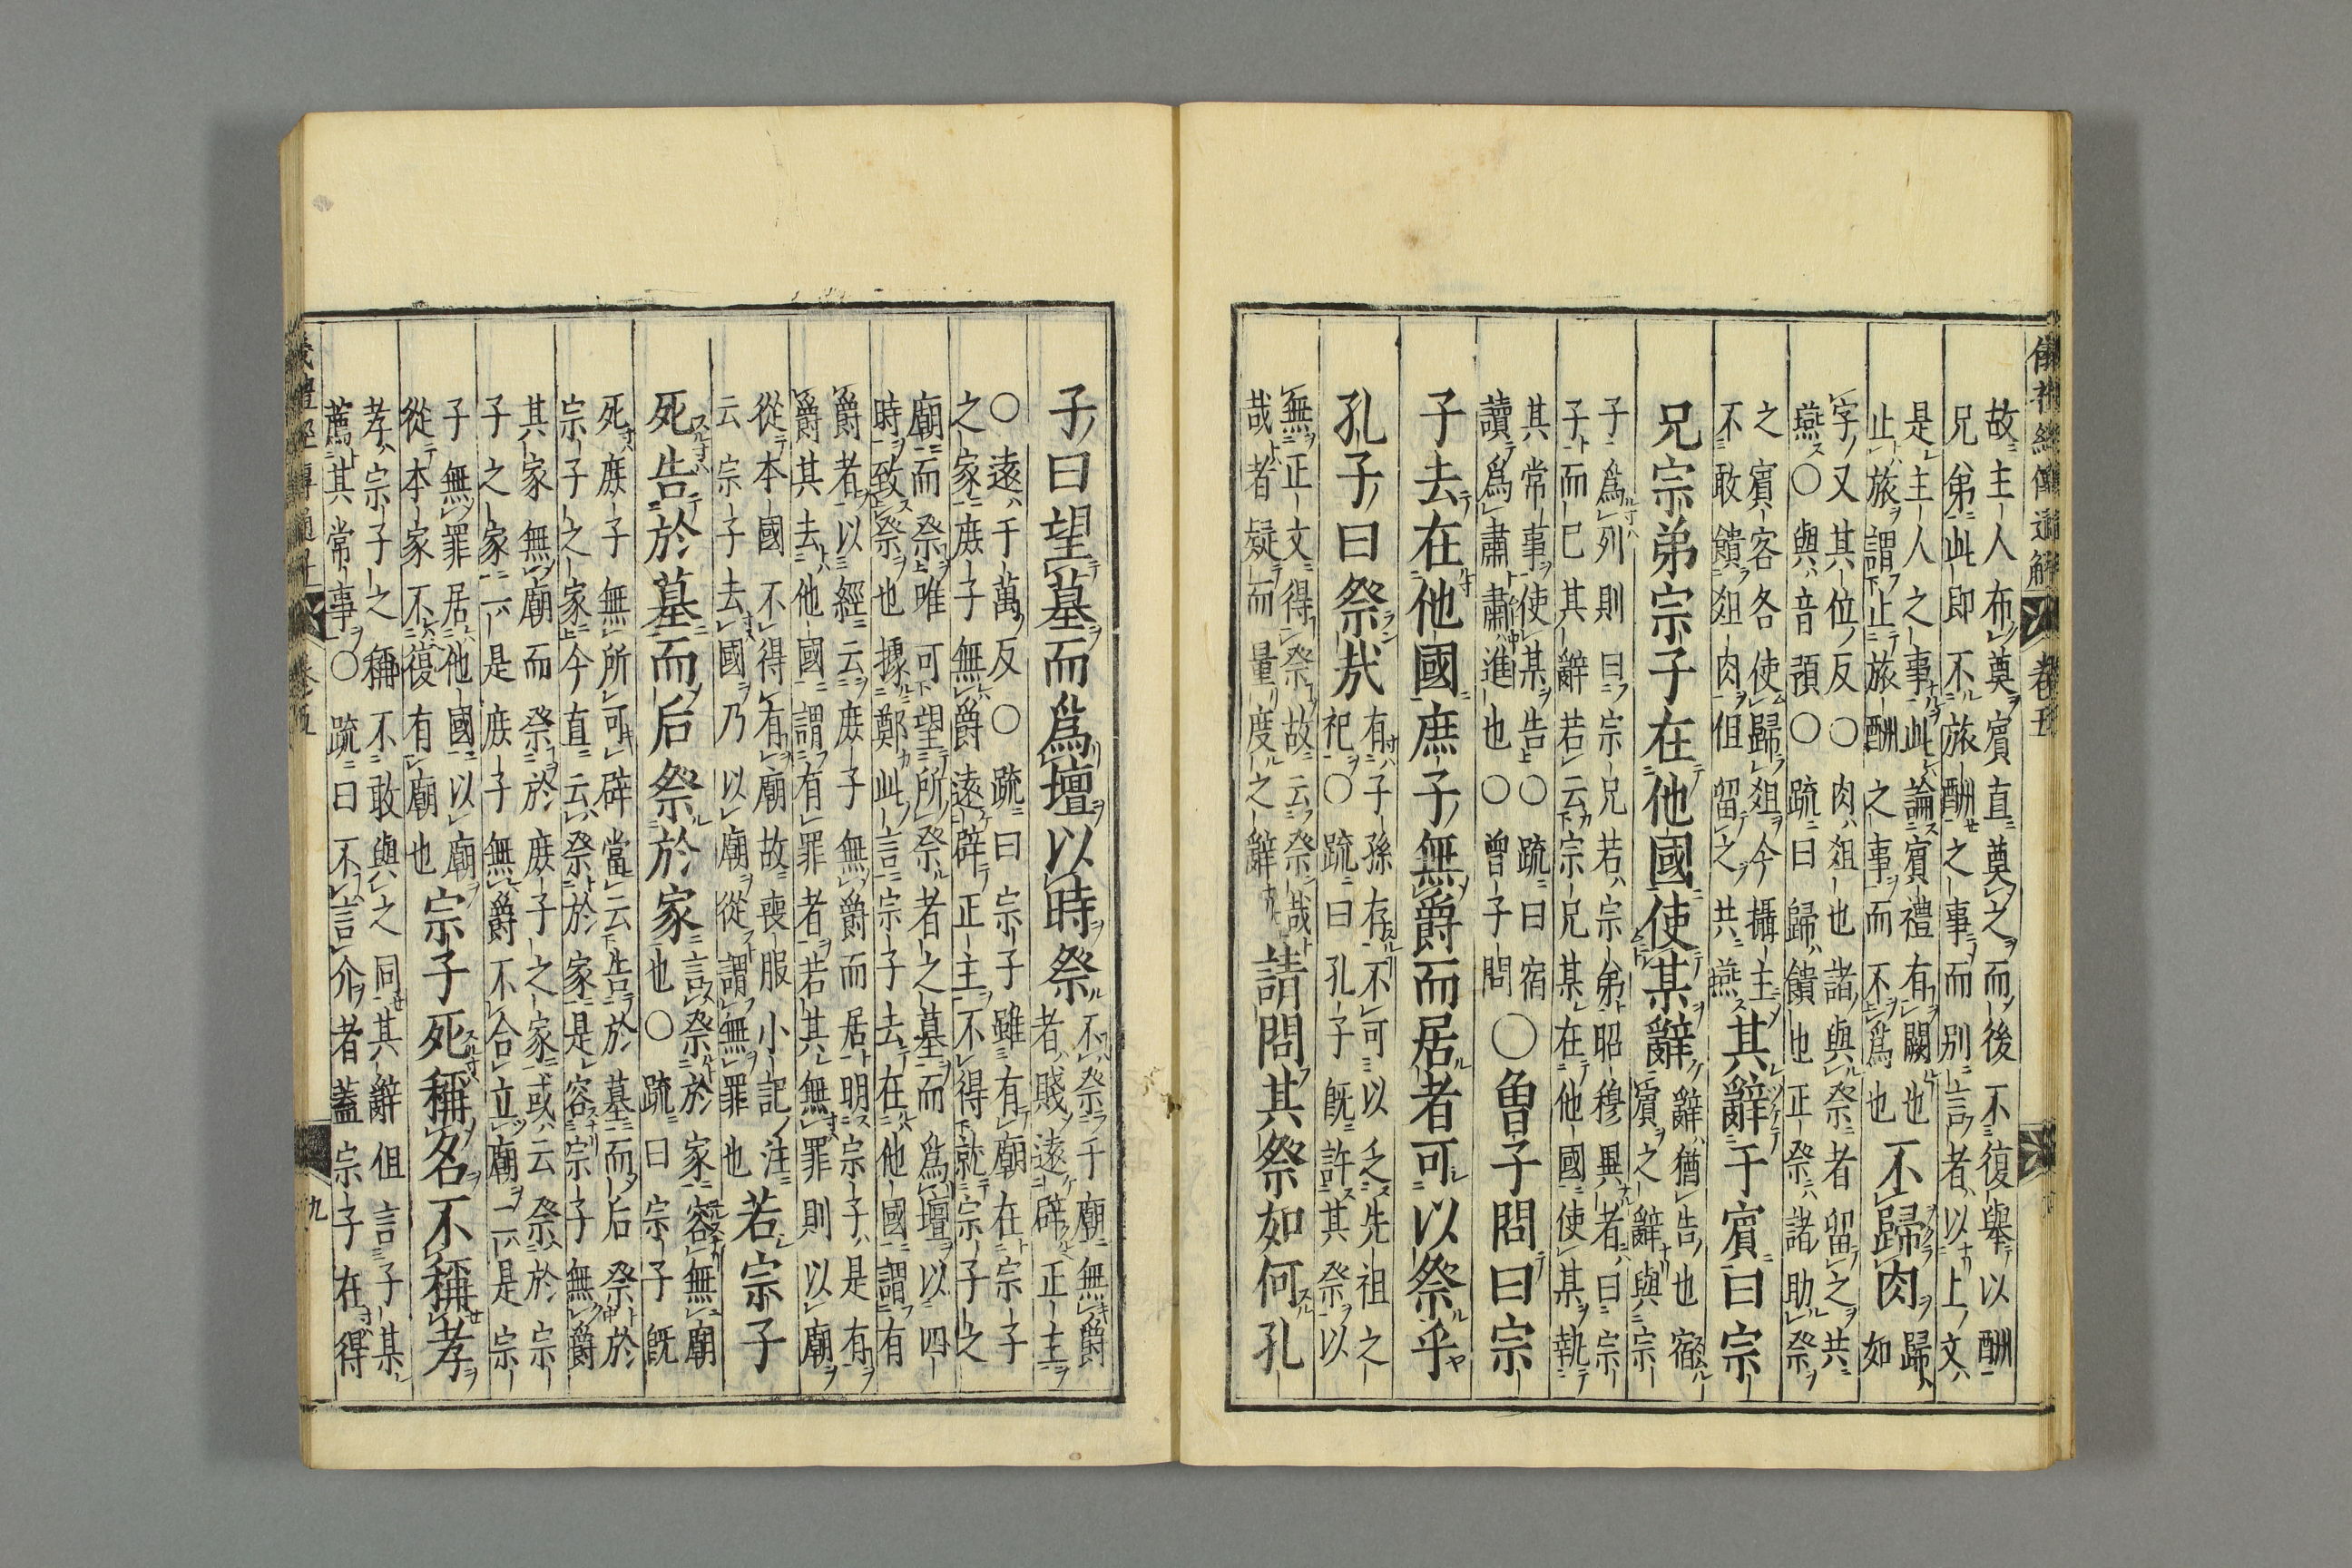 儀禮經傳通解 卷五
故主人布奠賓直奠之而後不復舉以酬
兄弟此即不旅酬之事而別言者以上文
是主人之事此論賓禮有闕也
止旅謂止旅酬之事而不爲也
不歸肉
歸
如
字又其位反○肉俎也諸與祭者留之共
燕○與音預○疏曰歸饋也正祭諸助祭
之賓客各使歸俎今攝主
不敢饋俎肉但留之共燕
其辭于賓曰宗
兄宗弟宗子在他國使某辭
辭猶告也宿
賓之辭與宗
子爲列則曰宗兄若宗弟昭穆異者曰宗
子而已其辭若云宗兄某在他國使某執
其常事使某告○疏曰宿
讀爲肅肅進也○曾子問
○曾子問曰宗
子去在他國庶子無爵而居者可以祭乎
孔子曰祭哉
有子孫存不可以乏先祖之
祀○疏曰孔子既許其祭以
無正文得祭故云祭哉
哉者疑而量度之辭
請問其祭如何孔
子曰望墓而爲壇以時祭
不祭于廟無爵
者賤遠辟正主
○遠于萬反○疏曰宗子雖有廟在宗子
之家庶子無爵遠辟正主不得就宗子之
廟而祭唯可望所祭者之墓而爲壇以四
時致祭也據鄭此言宗子去在他國謂有
爵者以經云庶子無爵而居明宗子是有
爵其去他國謂有罪者若其無罪則以廟
從本國不得有廟故喪服小記注
云宗子去國乃以廟從謂無罪也
若宗子
死告於墓而后祭於家
言祭於家容無廟
也○疏曰宗子既
死庶子無所可辟當云告於墓而后祭於
宗子之家今直云祭於家是容宗子無爵
其家無廟而祭於庶子之家或云祭於宗
子之家一是庶子無爵不合立廟二是宗
子無罪居他國以廟
從本家不復有廟也
宗子死稱名不稱孝
孝宗子之稱不敢與之同其辭但言子某
薦其常事○疏曰不言介者蓋宗子在得
儀禮經傳通解 卷五 九